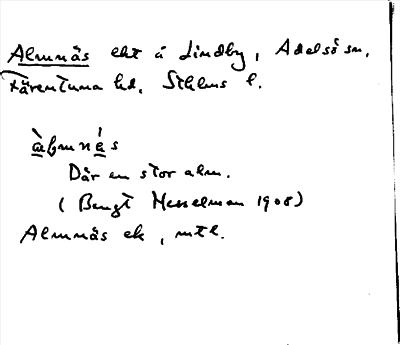 Almnäs ekt å Lindby, Adelsö sn,
Färentuna hd, Sthlms l.
àlmnä́s
Där en stor alm.
(Bengt Hesselman 1908)
Almnäs ek, mtl.